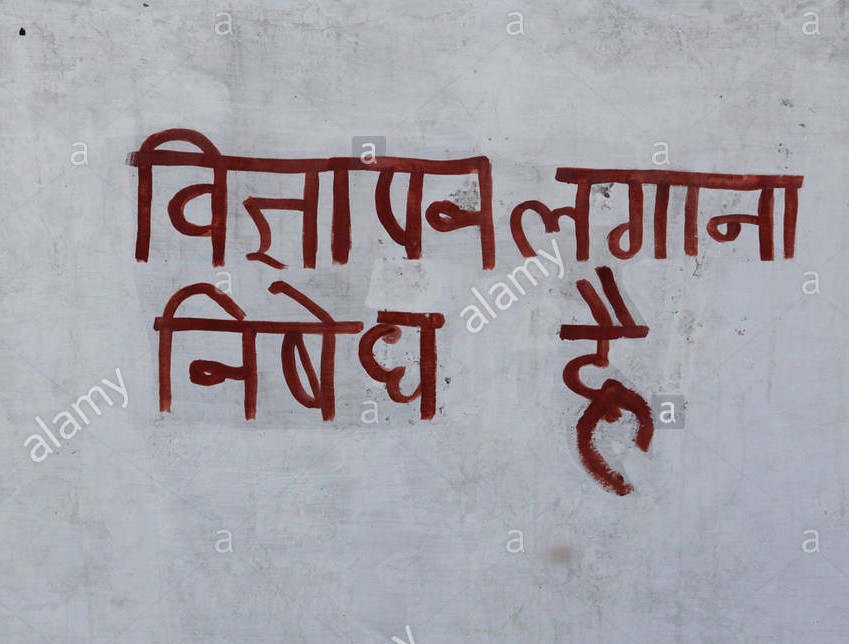 विज्ञापन लगाना
निषेध है
alamy
alamy
alamy